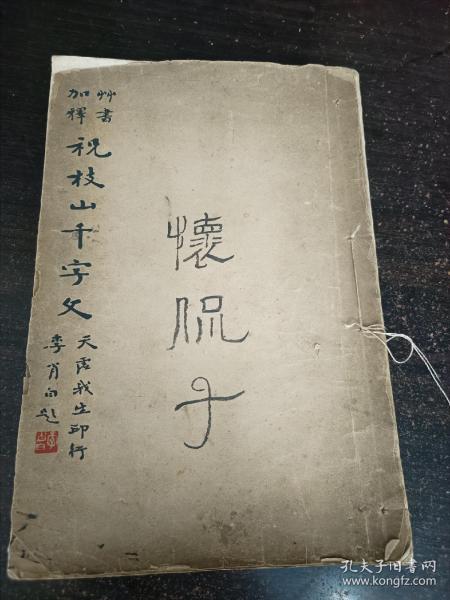 艸書
加釋
祝枝山千字文
天虛我生印行
李肖白題
懷侃子
孔夫子旧书网
www.kongfz.com